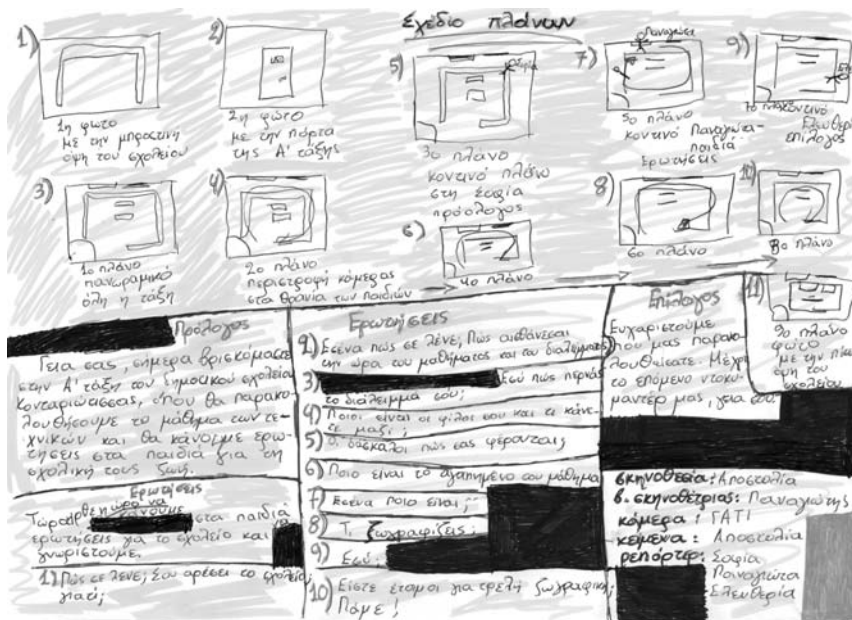 Σχέδιο πλάνων
1)
1η φωτο
με την μπροστινη
όψη του σχολείου
2)
2η φώτο
με την πόρτα
της Α' τάξης
3)
1ο πλάνο
πανωραμικό
όλη η τάξη
4)
2ο πλάνο
περιστροφή κάμερας
στα θρανία των παιδιών
5)
Σοφία
3ο πλάνο
κοντινό πλάνο
στη Σοφία
πρόολογος
6)
4ο πλάνο
7)
Παναγιώτα
5ο πλάνο
κοντινό Παναγιώτα-
παιδιά
Ερωτήσεις
8)
6ο πλάνο
9)
7ο πλάνο κοντινό
Ελευθερί
επίλογος
10)
8ο πλάνο
11)
9ο πλάνο
φώτο
με την πίσω
όψη του
σχολείου
Πρόλογος
Γεια σας, σήμερα βρισκόμαστε
στην Α' τάξη του δημοτικού σχολείου
Κονταριώτισσας, όπου θα παρακο-
λουθήσουμε το μάθημα των τε-
χνικών και θα κάνουμε ερω-
τήσεις στα παιδιά για τη
σχολική τους ζωή.
Ερωτήσεις
Τώρα ήρθε η ώρα να
κάνουμε στα παιδιά
ερωτήσεις για το σχολείο και
γνωριστούμε.
1) Πώς σε λένε; Σου αρέσει το σχολείο;
γιατί;
Ερωτήσεις
2) Εσένα πώς σε λένε; Πώς αισθάνεσαι
την ώρα του μαθήματος και του διαλείμματος;
3) Εσύ πώς περνάς
το διάλειμμα σου;
4) Ποιοι είναι οι φίλοι σου και τι κάνε-
τε μαζί;
5) Οι δάσκαλοι πώς σας φέρονται;
6) Ποιο είναι το αγαπημένο σου μάθημα
7) Εσένα ποιο είναι;
8) Τι ζωγραφίζεις;
9) Εσύ;
10) Είστε έτοιμοι για τρελή ζωγραφική;
Πάμε!
Επίλογος
Ευχαριστούμε
που μας παρακο-
λουθήσατε. Μέχρι
το επόμενο ντοκυ-
μαντέρ μας, γεια σου.
σκηνοθεσία: Αποστολία
β. σκηνοθέτριας: Παναγιώτης
κάμερα: ΓΑΤΙ
κείμενα: Αποστολία
ρεπόρτερ: Σοφία
Παναγιώτα
Ελευθερία